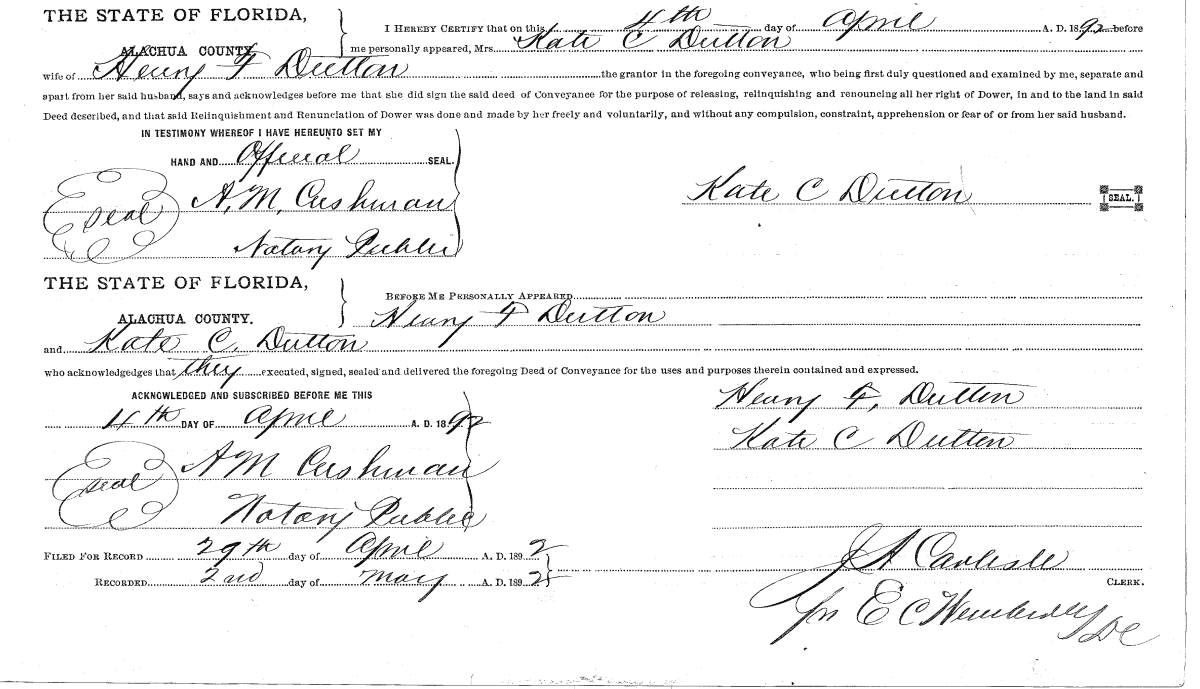 THE STATE OF FLORIDA,
ALACHUA COUNTY.
I HEREBY CERTIFY that on this 4th day of April A. D. 1892 before
me personally appeared, Mrs. Kate C Dutton
wife of Henry F Dutton the grantor in the foregoing conveyance, who being first duly questioned and examined by me, separate and
apart from her said husband, says and acknowledges before me that she did sign the said deed of Conveyance for the purpose of releasing, relinquishing and renouncing all her right of Dower, in and to the land in said
Deed described, and that said Relinquishment and Renunciation of Dower was done and made by her freely and voluntarily, and without any compulsion, constraint, apprehension or fear of or from her said husband.
IN TESTIMONY WHEREOF I HAVE HEREUNTO SET MY
HAND AND Official SEAL.
seal A. M. Cushman
Kate C Dutton SEAL.
Notary Public
THE STATE OF FLORIDA,
ALACHUA COUNTY.
BEFORE ME PERSONALLY APPEARED
Henry F Dutton
and Kate C. Dutton
who acknowledgedges that they executed, signed, sealed and delivered the foregoing Deed of Conveyance for the uses and purposes therein contained and expressed.
ACKNOWLEDGED AND SUBSCRIBED BEFORE ME THIS
4th DAY OF April A. D. 1892
Henry F, Dutton
Kate C Dutton
seal A M Cushman
Notary Public
FILED FOR RECORD 29th day of April A. D. 1892
RECORDED 2nd day of May A. D. 1892
J A Carlisle
CLERK.
E C DC